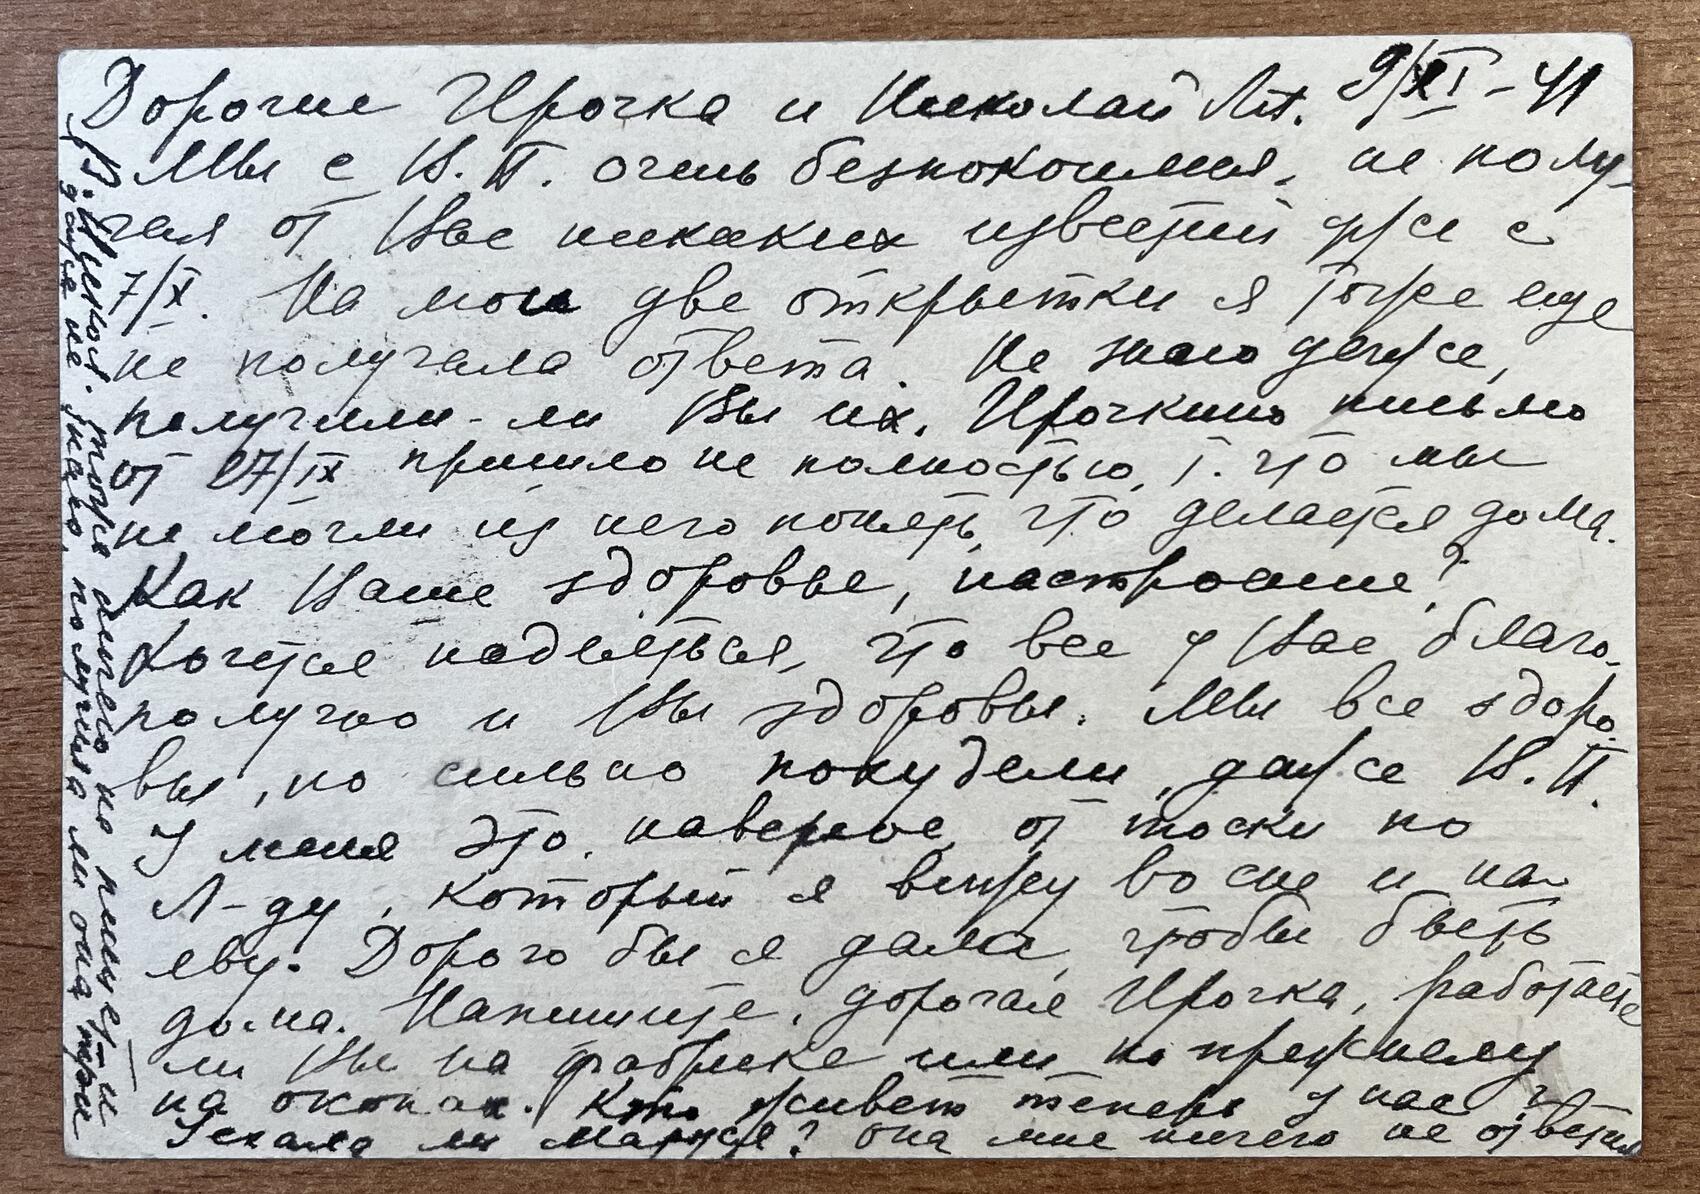 9/XI-41
Дорогие Ирочка и Николай Ант.
Мы с В.П. очень безпокоимся, не полу-
чая от Вас никаких известий уже с
7/X. На мои две открытки я тоже еще
не получала ответа. Не знаю даже,
получили-ли Вы их. Ирочкино письмо
от 27/IX пришло не полностью, т. что мы
не могли из него понять, что делается дома.
Как Ваше здоровье, настроение?
Хочется надеяться, что все у Вас благо-
получно и Вы здоровы. Мы все здоро-
вы, но сильно похудели, даже В.П.
У меня это, наверное, от тоски по
Л-ду, который я вижу во сне и на-
яву. Дорого бы я дала, чтобы быть
дома. Напишите, дорогая Ирочка, работаете
ли Вы на фабрике или по прежнему
на окопах. Кто живет теперь у нас?
Уехала ли Маруся? Она мне ничего не ответила
тоже ничего не пишет и
даже не знаю, получила ли она мои